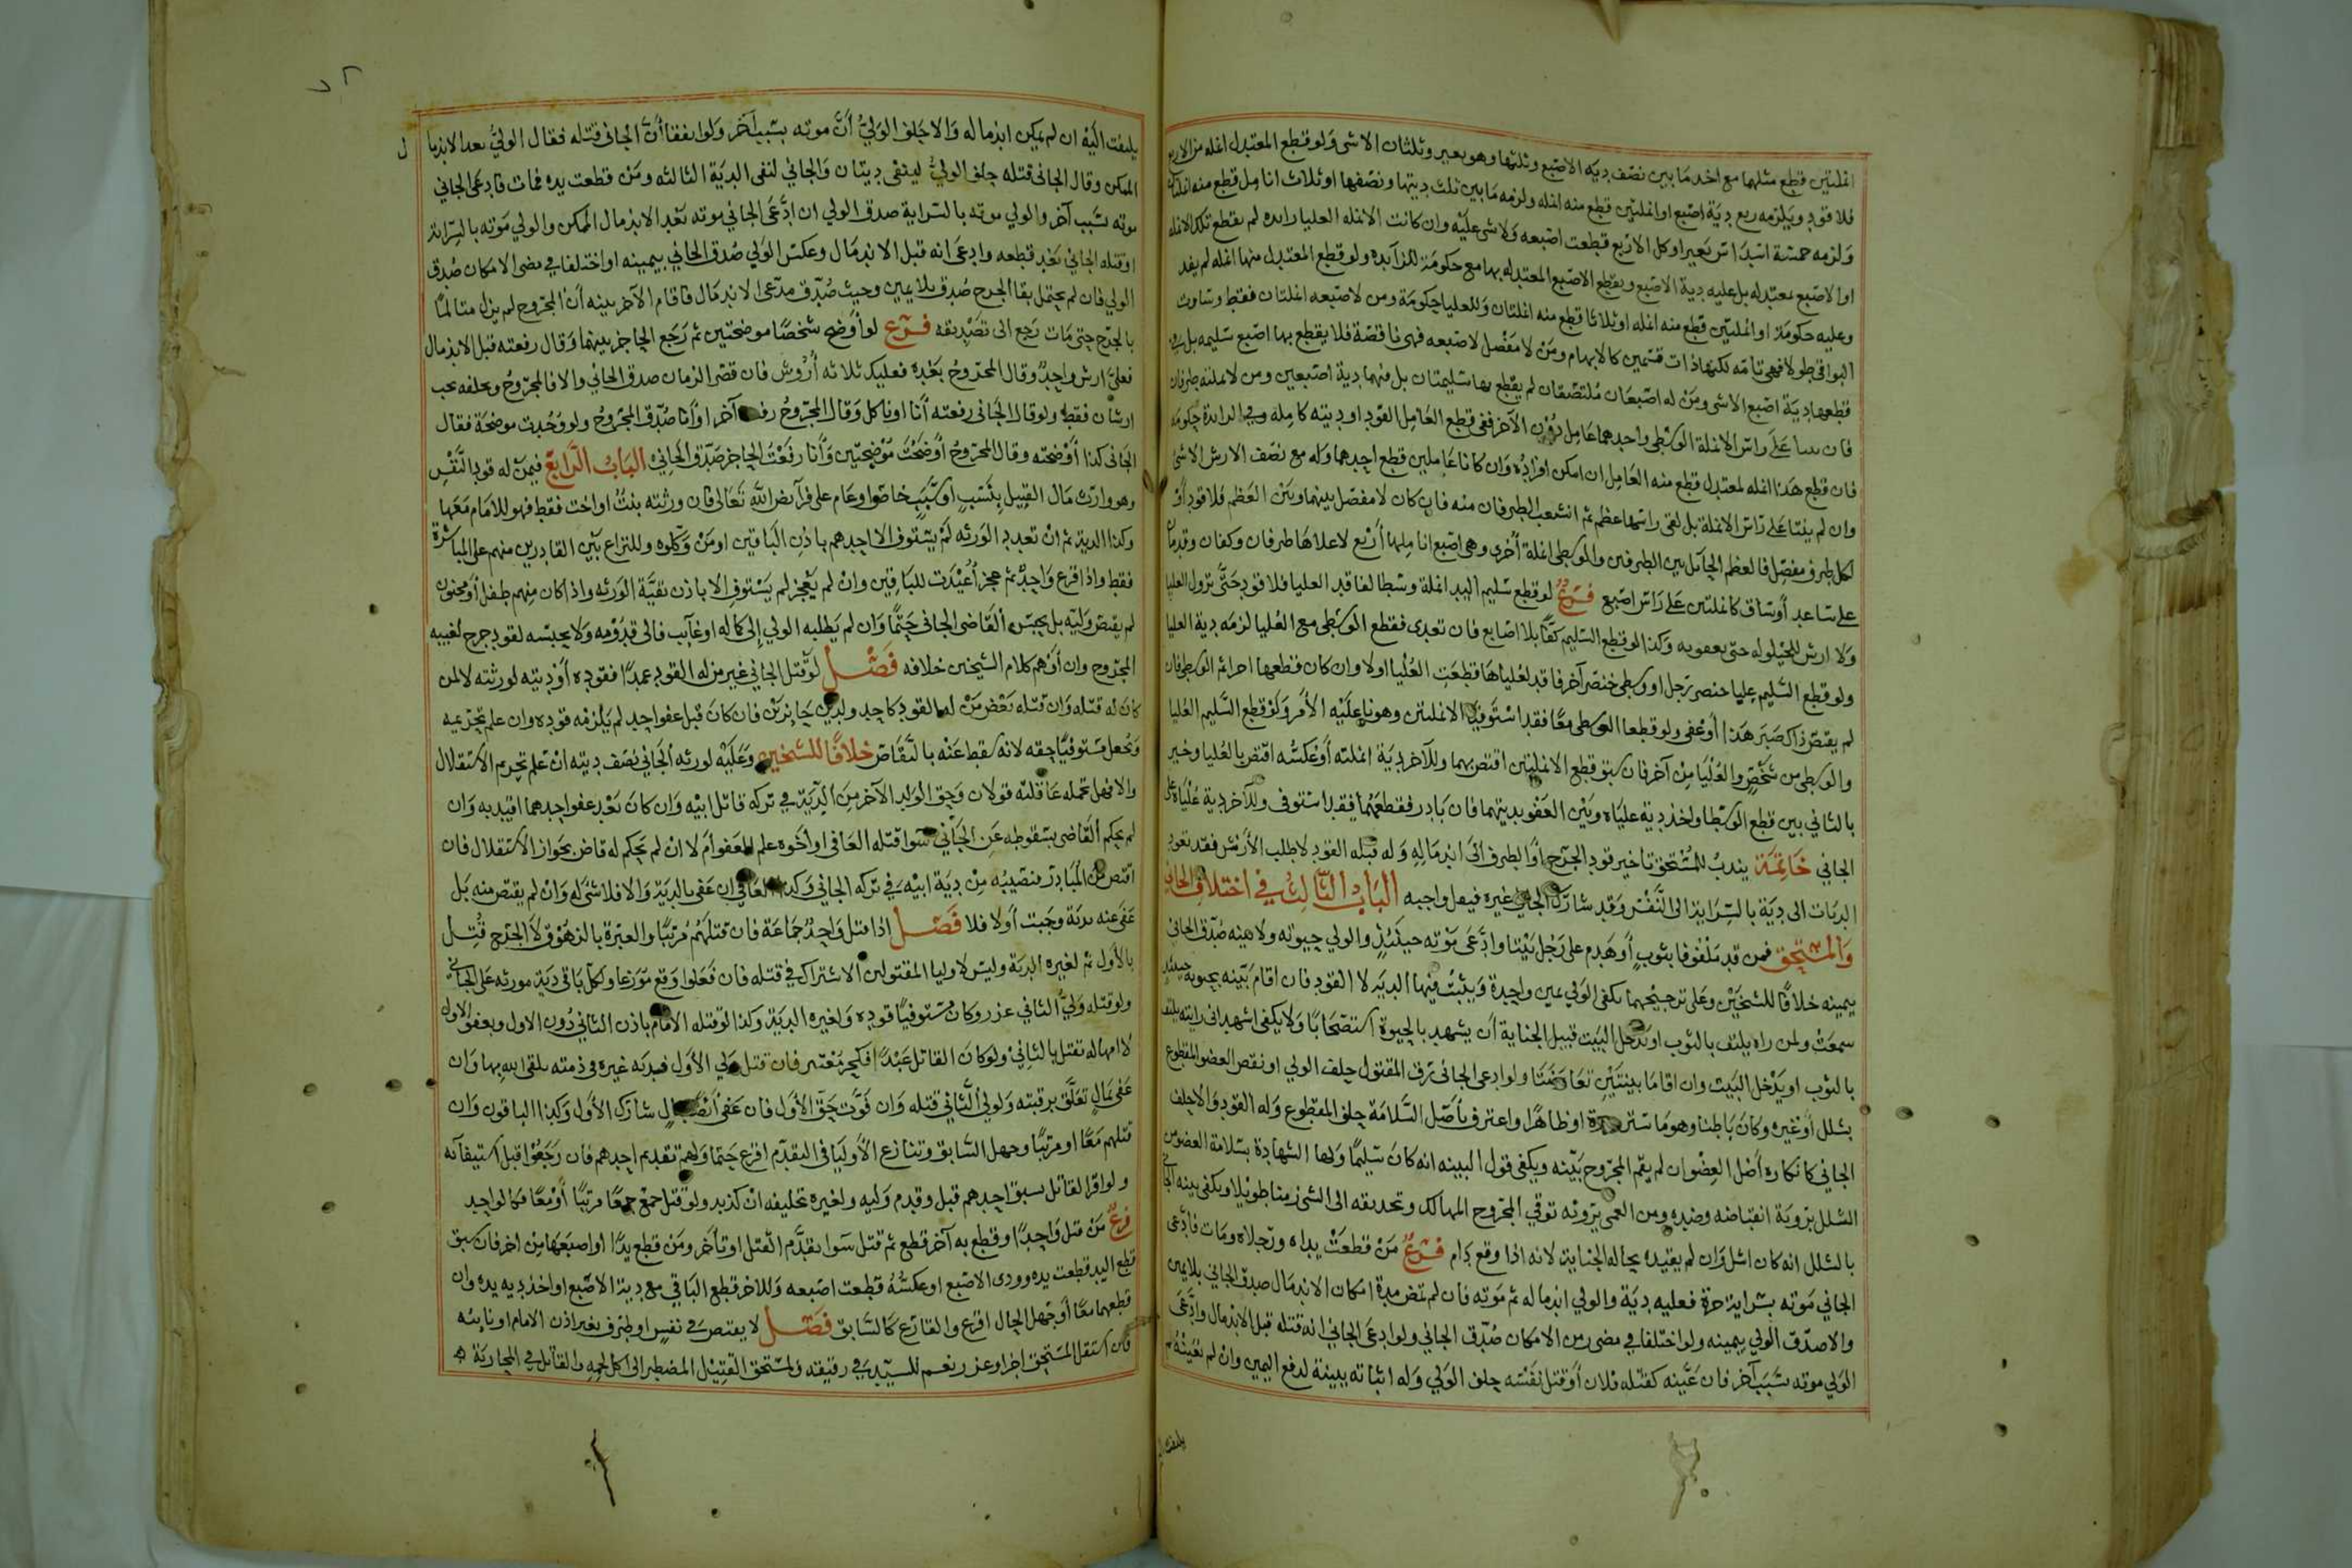 انملتين قطع مثلها مع اخد ما بين نصف دية الاصبع وثلثها وهو بعير وثلثان الاشى ولو قطع المعتدل انمله من الاربع
فلا قود ويلزمه ربع دية اصبع او انملتين قطع منه انمله ولزمه ما بين ثلث ديتها ونصفها او ثلاث انامل قطع منه انملتان
ولزمه خمسة اسداس بعير او كل الاربع قطعت اصبعه ولا شى عليه وان كانت الانمله العليا زايده لم يقطع تلك الانمله
او الاصبع بمعتدله بل عليه دية الاصبع ويقطع الاصبع المعتدله بها مع حكومة للزآيده ولو قطع المعتدل منها انمله لم يقد
وعليه حكومة او انملتين قطع منه انمله او ثلاثا قطع منه انملتان وللعليا حكومة ومن لاصبعه انملتان فقط وساوت
البواقي طولا فهي تامه لكنها ذات قسمين كالابهام ومن لا مفصل لاصبعه فهي ناقصة فلا يقطع بها اصبع سليمه بل في
قطعها دية اصبع الاشى ومن له اصبعان ملتصقان لم يقطع بها سليمتان بل فيهما دية اصبعين ومن لانملته طرفان
فان علي راس الانملة الوسطى واحدهما عامل دون الآخر ففي قطع العامل القود او ديته كامله وفي الزايدة حكومه
فان قطع هذا انمله لمعتدل قطع منه العامل ان امكن افراده وان كانا عاملين قطع احدهما وله مع نصف الارش الاشئ
وان لم ينبتا على راس الانملة بل لقى راسها عظم ثم انشعب الطرفان منه فان كان لا مفصل بينهما وبين العظم فلا قود او
لكل طرف مفصل فالعظم الحآئل بين الطرفين والوسطى انملة أخرى وهي اصبع اناملها أربع لاعلاها طرفان وكفان وقدما
على ساعد أو ساق كانملتين على راس اصبع فرع لو قطع سليم اليد انملة وسطا لفاقد العليا فلا قود حتى تزول العليا
ولا ارش للحيلوله حتى يعفو به وكذا لو قطع السليم كفا بلا اصابع فان تعدى فقطع الوسطى مع العليا لزمه دية العليا
ولو قطع السليم عليا خنصر رجل او وسطى خنصر آخر فاقد لعلياها قطعت العليا اولا وان كان قطعها اخرا ثم الوسطى فان
لم يقتص ذاك صبر هذا أو عفى ولو قطعا الوسطى معا فقد استوفيا الانملتين وهونا عليه الأمر ولو قطع السليم العليا
والوسطى من شخص والعليا من آخر فان سبق قطع الانملتين اقتص بهما وللآخر دية انملته أو عكسه اقتص بالعليا وخير
بالثاني بين قطع الوسطا واخذ دية علياه وبين العفو بديتهما فان بادر فقطعهما فقد استوفى وللآخر دية علياه على
الجاني خاتمة يندب للمستحق تاخير قود الجرح أو الطرف الى اندماله وله قبله القود لا طلب الأرش فقد تعود
الديات الى دية بالسراية الى النفس وقد شارك الجاني غيره فيقل واجبه الباب الثالث في اختلاف الجاني
والمستحق فمن قد ملفوفا بثوب أو هدم على رجل بيتا وادعى موته حينئذ والولي حيوته ولا بينه صدق الجاني
بيمينه خلافا للشيخين وعلى ترجيحهما يكفى الولي يمين واحدة ويثبت فيها الدية لا القود فان اقام بينه بحيوته حينئذ
سمعت ولمن راه يلتف بالثوب او يدخل البيت قبيل الجناية أن يشهد بالحيوة استصحابا ولا يكفى اشهد اني رايته يلتف
بالثوب او يدخل البيت وان اقاما بينتين تعارضتا ولو ادعى الجاني رق المقتول حلف الولي او نقص العضو المقطوع
بشلل أو غيره وكان باطنا وهو ما ستر مروة او ظاهرا واعترف باصل السلامة حلف المقطوع وله القود والا حلف
الجاني كانكاره أصل العضو ان لم يقم المجروح بينه ويكفى قول البينه انه كان سليما ولها الشهادة بسلامة العضو من
الشلل بروية انقباضه وضده ومن العمى بروئه توقي المجروح المهالك وتحديقه الى الشئ زمنا طويلا ويكفى بينه الجاني
بالشلل انه كان اشل وان لم يقيده بحاله الجناية لانه اذا وقع دام فرع من قطعت يداه ورجلاه ومات فادعى
الجاني موته بسراية حرة فعليه دية والولي اندماله ثم موته فان لم تمض مدة امكان الاندمال صدق الجاني بلا يمين
والا صدق الولي بيمينه ولو اختلفا في مضى زمن الامكان صدق الجاني ولو ادعى الجاني انه قتله قبل الاندمال وادعى
الولي موته بسبب آخر فان عينه كقتله فلان أو قتل نفسه حلف الولي وله اثباته ببينة لدفع اليمين وان لم يعينه لم
يلتفت اليه ان لم يمكن اندماله والا حلف الولي أن موته بسبب آخر ولو اتفقا أن الجاني قتله فقال الولي بعد الاندمال
الممكن وقال الجاني قتله حلف الولي ليتقى ديتان والجاني لنفى الدية الثالثه ومن قطعت يده فمات فادعى الجاني
موته بسبب آخر والولي موته بالسراية صدق الولي ان ادعى الجاني موته بعد الاندمال الممكن والولي موته بالسراية
او قتله الجاني بعد قطعه وادعى انه قبل الاندمال وعكس الولي صدق الجاني بيمينه او اختلفا في مضى الامكان صدق
الولي فان لم يحتمل بقا الجرح صدق بلا يمين وحيث صدق مدعى الاندمال فاقام الآخر بينه أن المجروح لم يزل متالما
بالجرح حتى مات رجع الى تصديقه فرع لو أوضح شخصا موضحتين ثم رجع الحاجز بينهما وقال رفعته قبل الاندمال
فعلي ارش واحد وقال المجروح بعده فعليك ثلاثه أروش فان قصر الزمان صدق الجاني والا فالمجروح وبحلفه يجب
ارشان فقط ولو قال الجاني رفعته أنا او تاكل وقال المجروح رفعه آخر او أنا صدق المجروح ولو وجدت موضحة فقال
الجاني كذا أوضحته وقال المجروح أوضحت موضحتين وأنا رفعت الحاجز صدق الجاني الباب الرابع فيمن له قود النفس
وهو وارث مال القتيل بنسب او سبب خاصا وعام على فرآئض الله تعالى فان ورثته بنت او اخت فقط فهو للامام معها
وكذا الدية ثم ان تعدد الورثه لم يستوف الا احدهم باذن الباقين او من وكلوه وللنزاع بين القادرين منهم على المباشرة
فقط واذا قرع واحد ثم عجز أعيدت للباقين وان لم يعجز لم يستوف الا باذن بقية الورثه واذا كان منهم طفل أو مجنون
لم يقتص وليه بل يحبس القاضي الجاني حتما وان لم يطلبه الولي إلى كماله او غآيب فالى قدومه ولا يحبسه لقود جرح لغيبه
المجروح وان أوهم كلام الشيخين خلافه فصل لو قتل الجاني غير من له القود عمدا فقوده أو ديته لورثته لا لمن
كان له قتله وان قتله بعض من له القود كاحد ولدين حائزين فان كان قبل عفو احد لم يلزمه قوده وان علم تحريمه
وجعل مستوفيا حقه لانه سقط عنه بالتقاص خلافا للشيخين وعليه لورثه الجاني نصف ديته ان علم تحريم الاستقلال
والا فهل تحمله عاقلته قولان وحق الولد الآخر من الدية في تركه قاتل ابيه وان كان بعد عفو احدهما اقيد به وان
لم يحكم القاضي بسقوطه عن الجاني سوا قتله العافى او أخوه علم العفو أم لا ان لم يحكم له قاض بجواز الاستقلال فان
اقتص من المبادر فنصيبه من دية ابيه في تركه الجاني وكذا العافي ان عفى بالدية والا فلا شى له وان لم يقتص منه بل
عفى عنه بدية وجبت أولا فلا فصل اذا قتل واحد جماعة فان قتلهم مرتبا والعبرة بالزهوق لا الجرح قتل
بالأول ثم لغيره الدية وليس لاوليا المقتولين الاشتراك في قتله فان فعلوا وقع موزعا ولكل باقي دية مورثه على الجاني
ولو قتله ولي الثاني عزر وكان مستوفيا قوده ولغيره الدية وكذا لو قتله الامام باذن الثاني دون الاول وبعفو الاول
لا امهاله تقتل بالثاني ولو كان القاتل عبدا فكحر معسر فان قتل بولي الأول فدية غيره في ذمته يلقى الله بها وان
عفى بمال تعلق برقبته ولولي الثاني قتله وان فوت حق الأول فان عفى أيضا بمال شارك الأول وكذا الباقون وان
قتلهم معا او مرتبا وجهل السابق وتنازع الأوليا في التقدم اقرع حتما ولهم تقديم احدهم فان رجعوا قبل استيفآئه
ولو اقر القاتل بسبق احدهم قبل وقدم وليه ولغيره تحليفه ان كذبه ولو قتل جمع جمعا مرتبا أو معا فكالواحد
فرع من قتل واحدا وقطع به آخر قطع ثم قتل سوا تقدم القتل او تأخر ومن قطع يدا او اصبعها من اخر فان سبق
قطع اليد قطعت يده وودى الاصبع او عكسه قطعت اصبعه وللاخر قطع الباقي مع دية الاصبع او اخذ ديه يده وان
قطعهما معا أو جهل الحال اقرع والقارع كالسابق فصل لا يقتص في نفس او طرف بغير اذن الامام او نائبه
فان استقل المستحق اجزا وعزر نعم للسيد في رقيقه ولمستحق القتيل المضطر الى اكل لحمه والقاتل في المحاربة